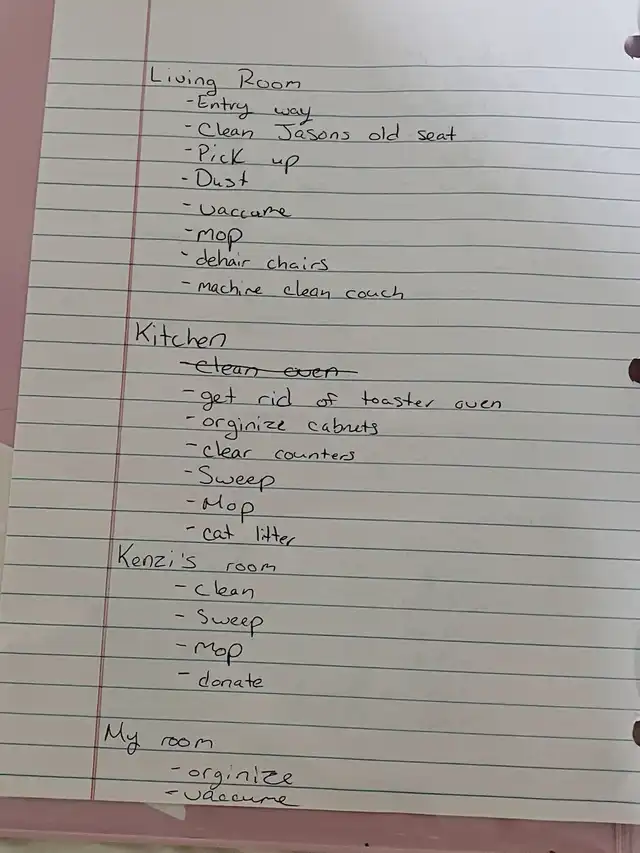 Living Room
- Entry way
- Clean Jasons old seat
- Pick up
- Dust
- vaccume
- mop
- dehair chairs
- machine clean couch
Kitchen
- clean oven
- get rid of toaster oven
- orginize cabnets
- clear counters
- Sweep
- Mop
- cat litter
Kenzi's room
- clean
- Sweep
- Mop
- donate
My room
- orginize
- vaccume